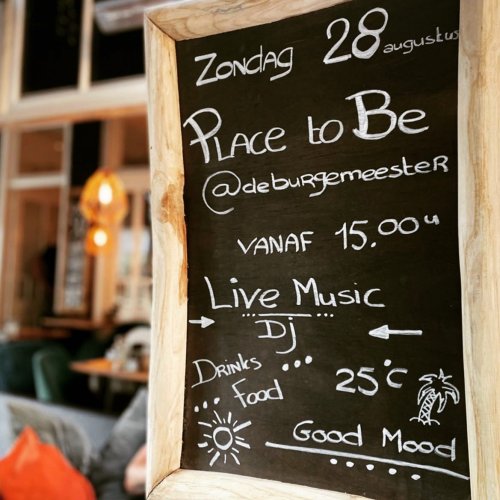 Zondag 28 augustus
Place to Be
@deburgemeester
VANAF 15.00u
Live Music
Dj
Drinks ...
... Food
25°C
Good Mood